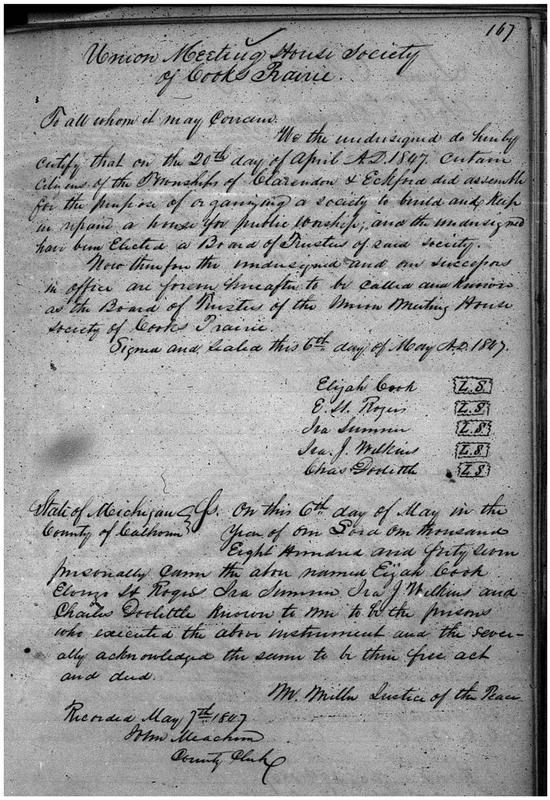 167
Union Meeting House Society
of Cooks Prairie.
To all whom it may Concern.
We the undersigned do hereby
certify that on the 20th day of April A.D. 1847. Certain
Citizens of the Townships of Clarendon & Eckford did assemble
for the purpose of organizing a society to build and keep
in repair, a house for public worship, and the undersigned
have been Elected a Board of Trustees of said society.
Now therefore the undersigned and our successors
in office are forever hereafter to be called and known
as the Board of Trustees of the Union Meeting House
society of Cooks Prairie.
Signed and sealed this 6th day of May A.D. 1847.
Elijah Cook L.S
E. St. Rogers L.S
Ira Sumner L.S
Ira. J. Wilkins L.S
Chas Doolittle L.S
State of Michigan } S. On this 6th day of May in the
County of Calhoun } Year of our Lord one thousand
Eight Hundred and forty seven
personally came the above named Elijah Cook
St Rogers Ira Sumner Ira J Wilkins and
Charles Doolittle known to me to be the persons
who executed the above instrument and the sever-
ally acknowledged the same to be their free act
and deed.
Wm. Miller Justice of the Peace
Recorded May 7th 1847
John Meachem
County Clerk